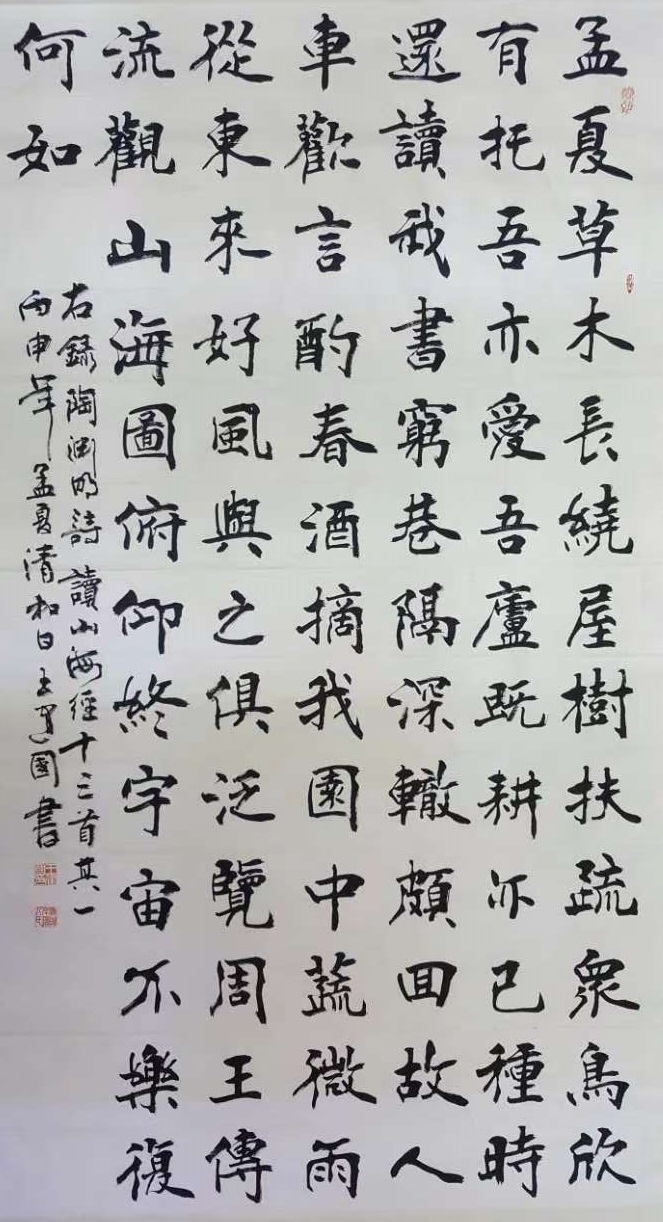 孟夏草木長繞屋樹扶疏衆鳥欣
有托吾亦愛吾廬既耕亦已種時
還讀我書窮巷隔深轍頗回故人
車歡言酌春酒摘我園中蔬微雨
從東來好風與之俱泛覽周王傳
流觀山海圖俯仰終宇宙不樂復
何如
右錄陶渊明詩讀山海經十三首其一
丙申年孟夏清和日王國書